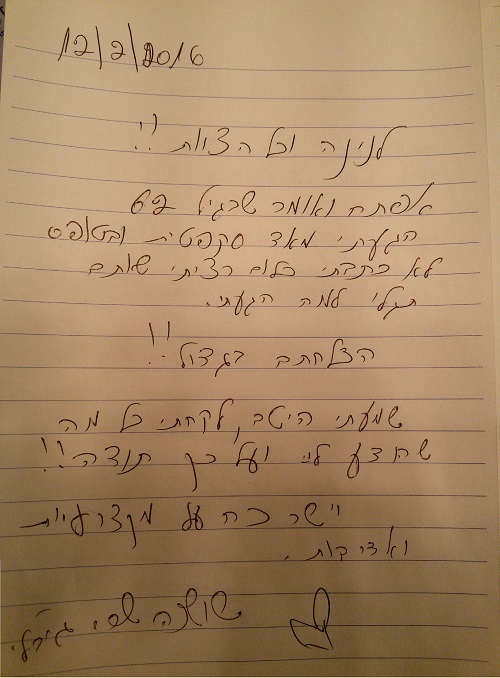 12/2/2016
לנינה וכל הצוות !!
אפתח ואומר שבגיל 62
הגעתי מאד סקפטית ובטופס
לא כתבתי כלום רציתי שאתם
תגלי למה הגעתי.
הצלחתם בגדול !!
שמעתי היטב, לקחתי כל מה
שהוצע לי ועל כך תודה !!
וישר כח על מקצועיות
ואדיבות.
שושנה